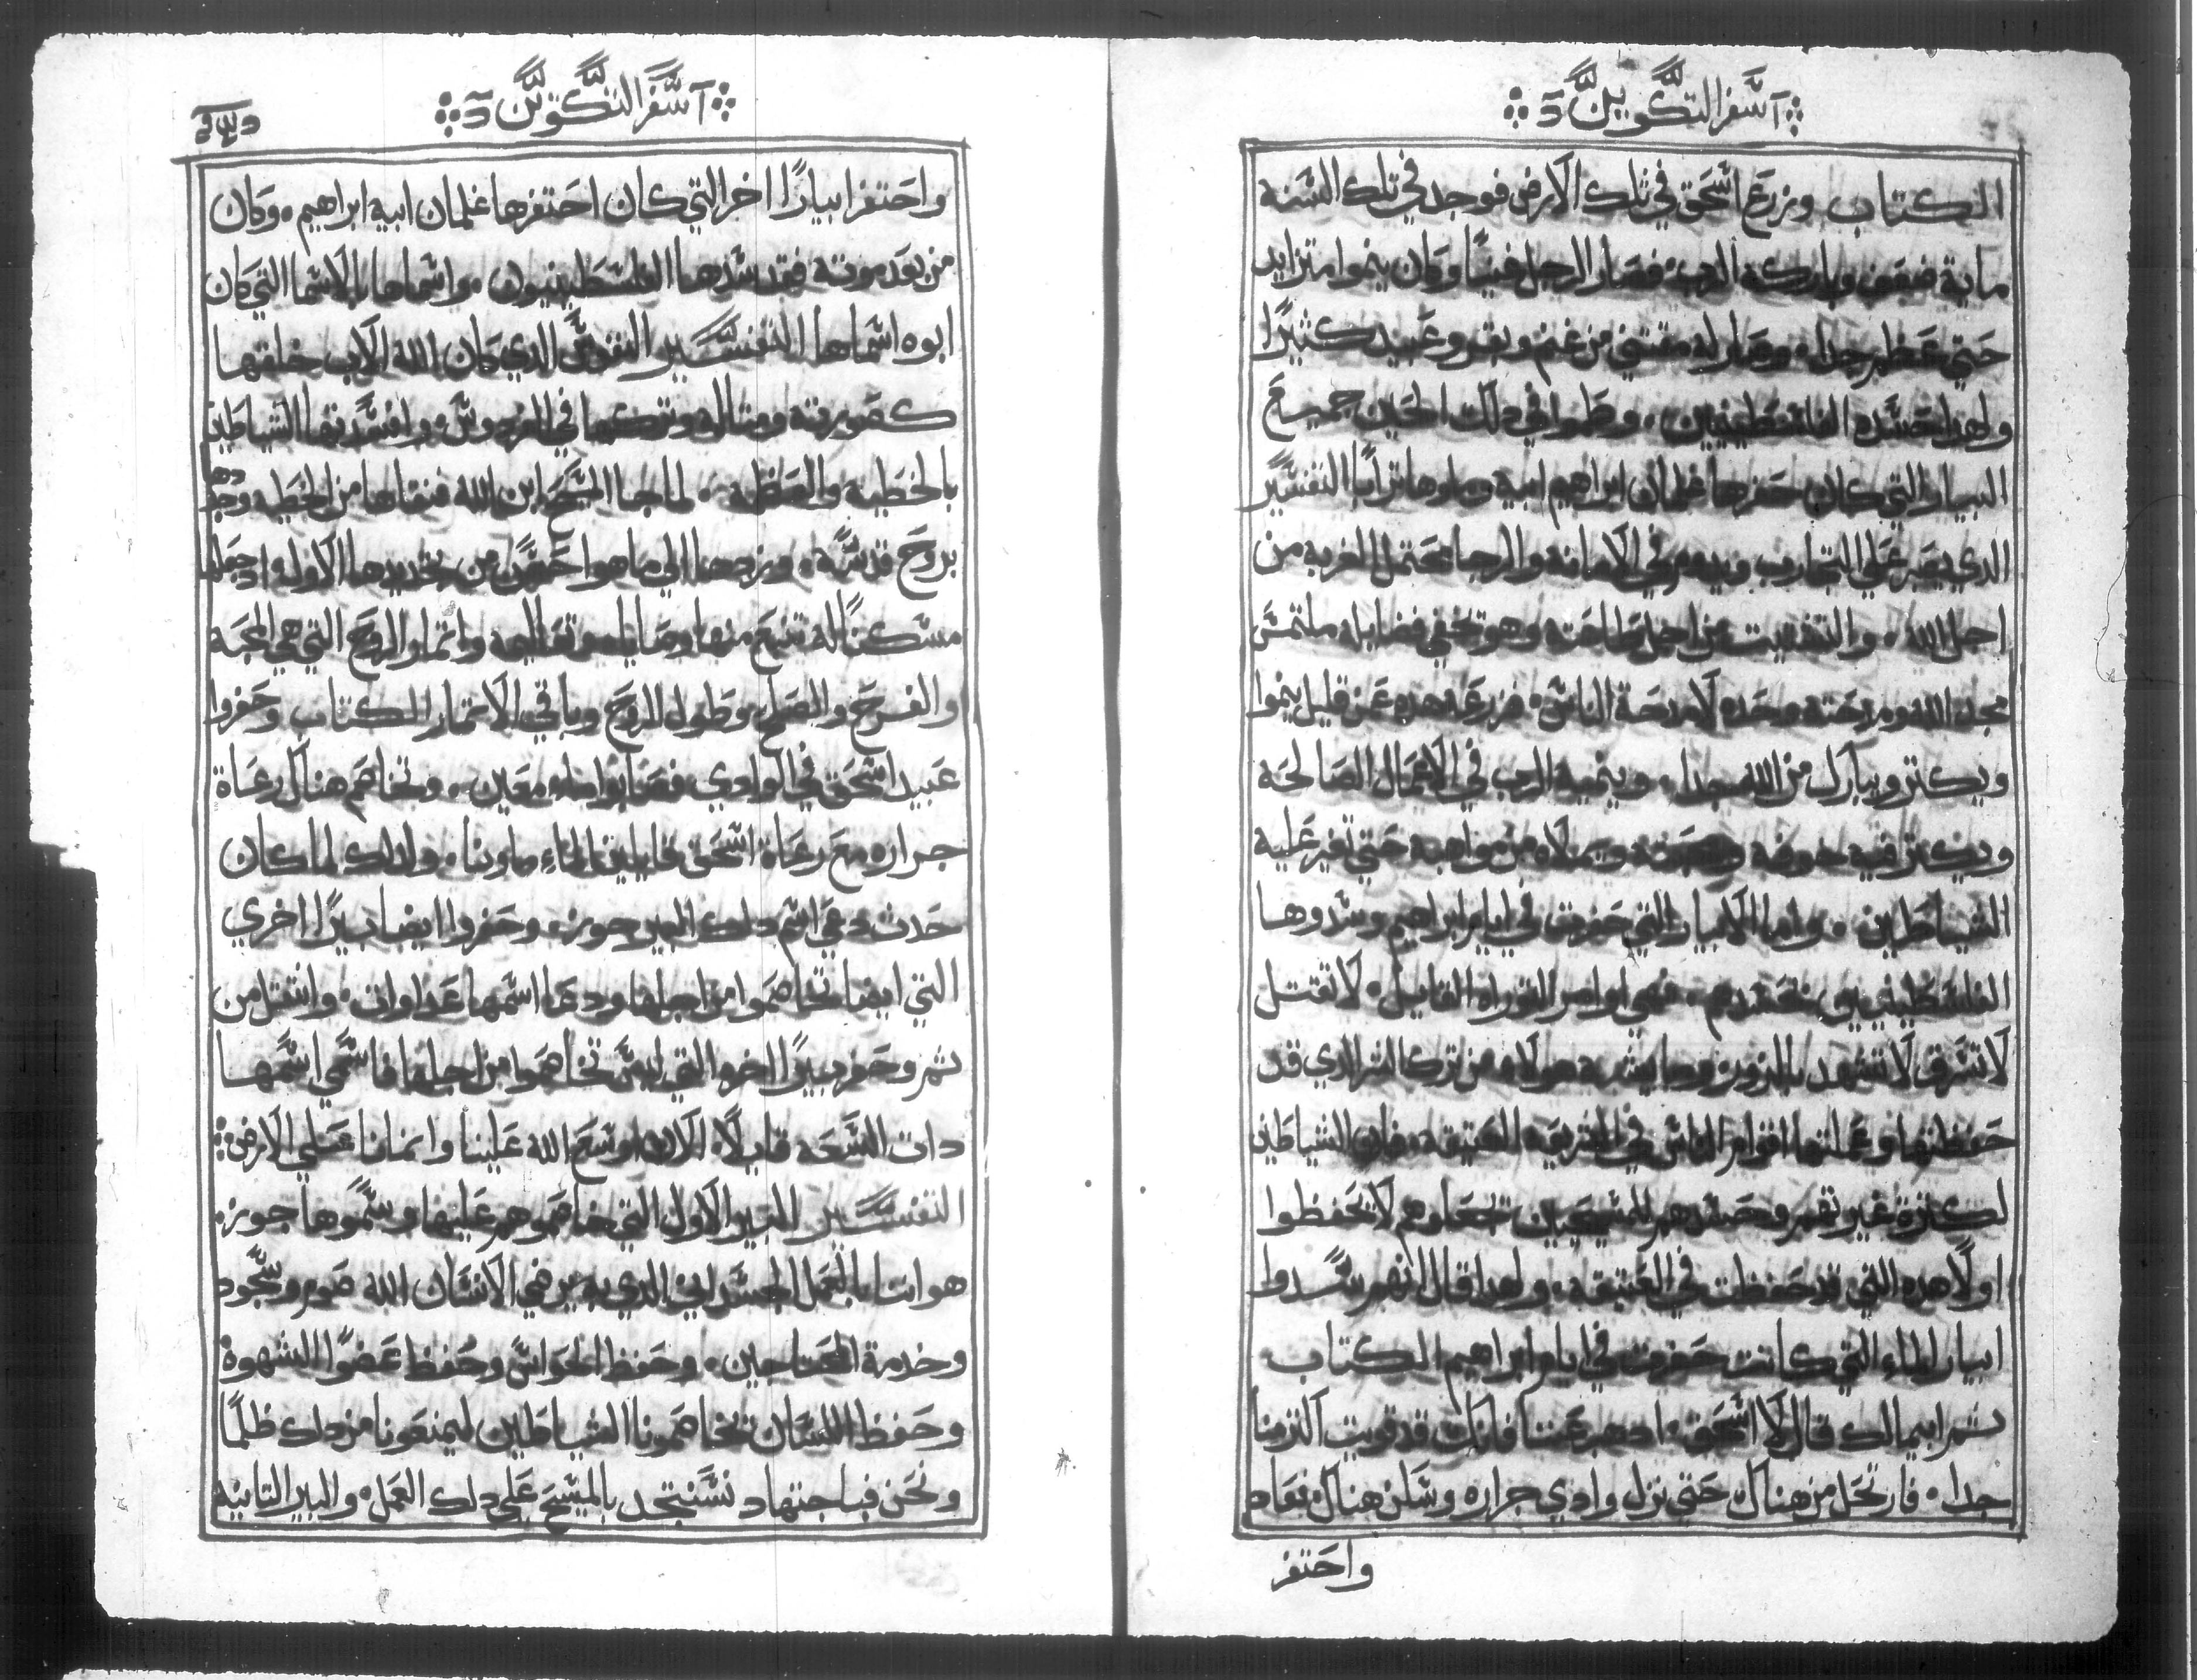 اسفر التكوين
الكتاب وزرع اسحق في تلك الارض فوجد في تلك السنه
ماية ضعف وباركه الرب فصار الرجل غنيًا وكان ينموا متزايد
حتي عظم جدا. وصار له مقتني من غنم وبقر وعبيد كثيرًا
ولهدا حسده الفلسطينيين. وطموا في دلك الحين جميع
البيار التي كان حفرها غلمان ابراهيم ابيه وملوها ترابًا التفسير
الدي يصبر علي التجارب ويدوم في الامانه والرجا محتمل الغربه من
اجل الله. والتفتيت من اجل طاعته وهو يخفي فضايله ملتمس
مجد الله ومدحته وحده لا مدحة الناس. فزرعه هده عن قليل ينموا
ويكتر ويبارك من الله جدا. وينميه الرب في الاعمال الصالحه
ويكتر فيه خوفه ويملاه من مواهبه حتي تغير عليه
الشياطين. واما الابيار التي حفرت في ايام ابراهيم وسدوها
الفلسطينيين فهي اوامر التوراه القايل. لا تقتل
لا تسرق لا تشهد بالزور وما يشبه هولاء من ترك الشر الدي قد
حفظتها وعملتها اقوام الناس في الشريعه العتيقه. فان الشياطين
لكترة وحسدهم للمسيحيين لا يحفظوا
اولًا هده التي قد حفظت في العتيقه. ولهدا قال انهم سدوا
ابيار الماء التي كانت حفرت في ايام ابراهيم الكتاب.
تم ابيمالك قال لا اسحق. ادهب عننا فانك قد قويت اكتر منا
جدا. فارتحل من هناك حتي نزل وادي جراره وسكن هناك فعاد
واحتفر
اسفر التكوين
واحتفر ابيارًا اخر التي كان احتفرها غلمان ابيه ابراهيم. وكان
من بعد موته فقد سدها الفلسطينيون. واسماها بالاسما التي كان
ابوه اسماها التفسير النفوس الدي كان الله الاب خلقها
كصورته ومتاله وتركها في الفردوس. وافسدتها الشياطين
بالخطية. لما جا المسيح ابن الله فنقاها من الخطيه وجددها
بروح قدسه. وردها الي ما هوا من تجديدها الاول وادجعلها
مسكنًا له تنبع منها وصاياه وتعاليمه واتمار الروح التي هي المحبه
والفرح والصلح وطول الروح وباقي الاتمار الكتاب وحفروا
عبيد اسحق في الوادي فصابوا ماء معين. وتخاصم هناك رعاة
جراره مع رعاة اسحق قايلين الماء ماونا. ولدلك لما كان
حدت دعي اسم دلك البير جوز. وحفروا ايضا بيرًا اخري
التي ايضا تخاصموا من اجلها ودعا اسمها عداوات. وانتقل من
تم وحفر بيرًا اخرو التي ليس تخاصموا من اجلها فاسمي اسمها
دات السعه قايلًا. الان اوسع الله علينا وانمانا علي الارض
التفسير البير الاول التي خاصموهم عليها وسموها جوز.
هو اتنا بالعمل الجسداني الدي به يرضي الانسان الله صوم وسجود
وخدمة المحتاجين. وحفظ الحواس وحفظ عضوًا الشهوة
وحفظ اللسان تخاصمونا الشياطين ليمنعونا من دلك ظلمًا
ونحن فباجتهاد نستنجد بالمسيح علي دلك العمل. والبير التانيه